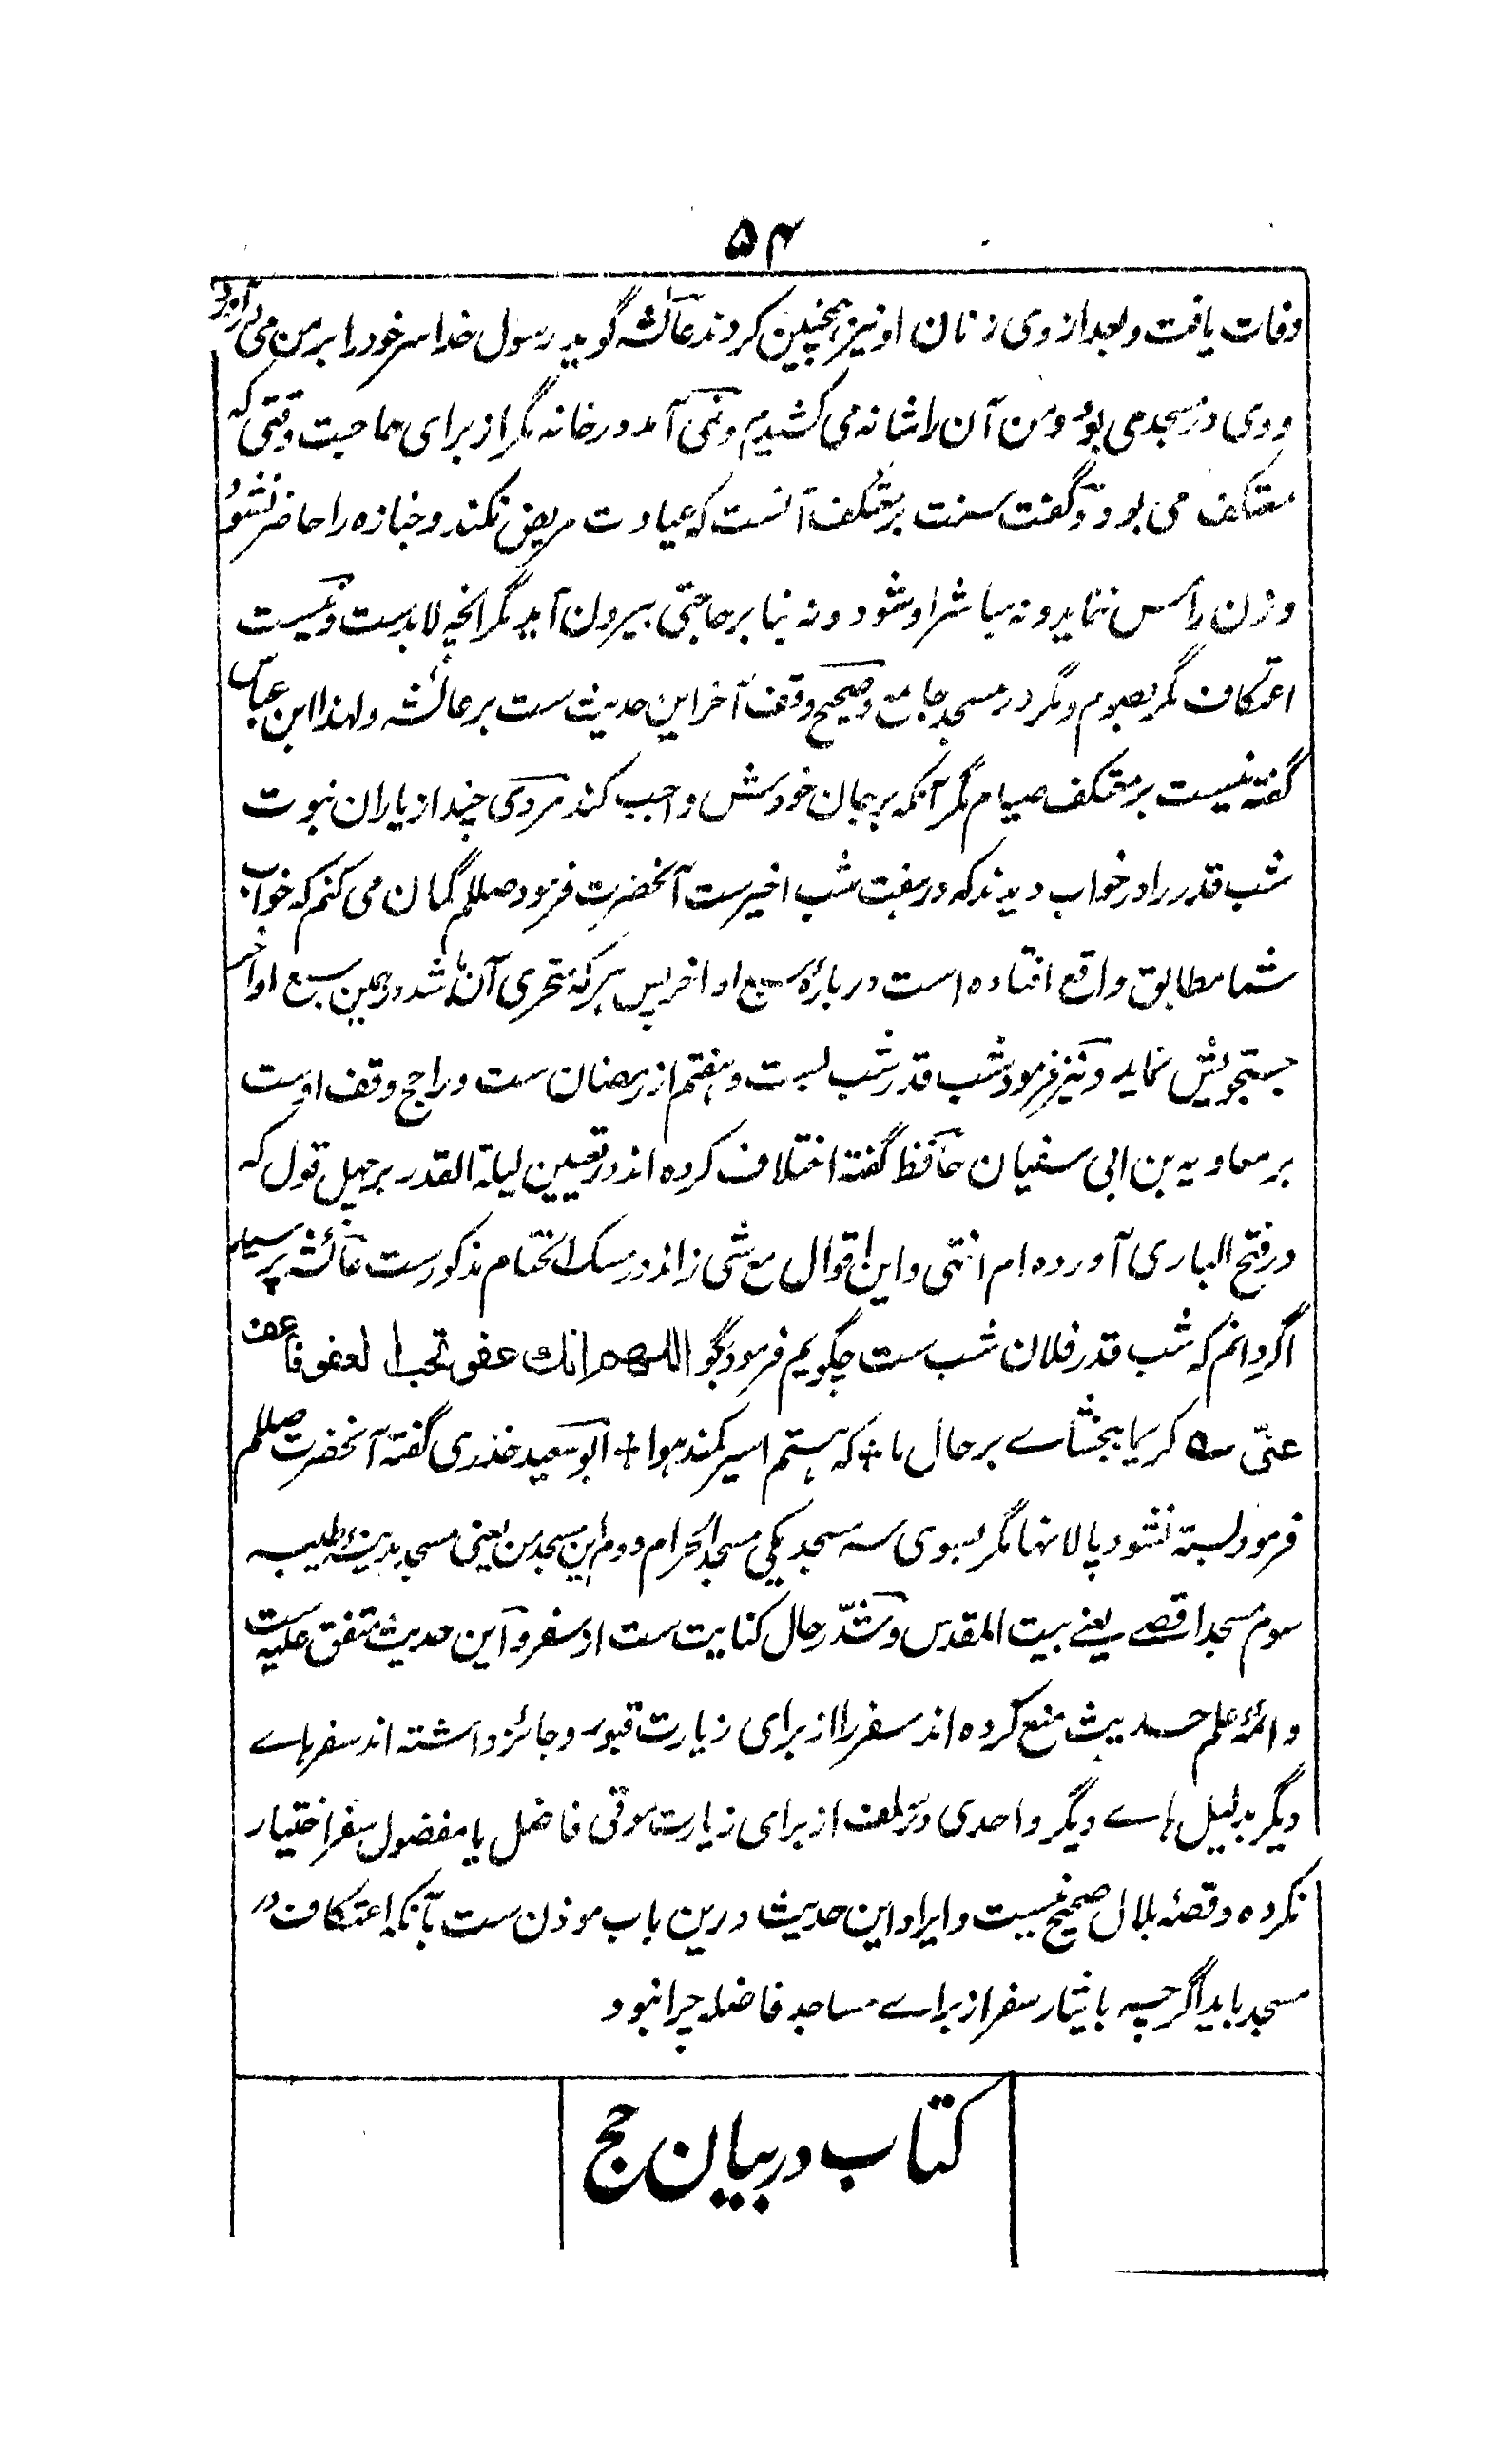 ۵۴
وفات یافت و بعد از وی زنان او نیز همچنین کردند عائشه گوید رسول خدا سر خود را بر من می درآورد
و وی در مسجد می بود و من آن را شانه می کشیدم و نمی آمد در خانه مگر از برای حاجت وقتی که
معتکف می بود و گفت سنت بر معتکف آنست که عیادت مریض نکند و جنازه را حاضر نشود
و زن را مس ننماید و نه مباشر او شود و نه بنا بر حاجتی بیرون آید مگر انچه لابدست و نیست
اعتکاف مگر بصوم و مگر در مسجد جامع و صحیح وقف آخر این حدیث ست بر عائشه و لهذا ابن عباس
گفته نیست بر معتکف صیام مگر آنکه بر جان خودش واجب کند مردی چند از یاران نبوت
شب قدر را در خواب دیدند که در هفت شب اخیرست آنحضرت فرمود صللم گمان می کنم که خواب
شما مطابق واقع افتاده است درباره سبع اواخر پس هر که متحری آن باشد در همین سبع اواخر
جستجویش نماید و نیز فرمود شب قدر شب بست و هفتم از رمضان ست و راجح وقف اوست
بر معاویه بن ابی سفیان حافظ گفته اختلاف کرده اند در تعیین لیلة القدر بر چهل قول که
در فتح الباری آورده ام انتهی و این اقوال مع شی زائد در مسک الختام مذکورست عائشه پرسید
اگر دانم که شب قدر فلان شب ست چگویم فرمود بگو اللهم انك عفو تحب العفو فاعف
عنّی ؎ کریما ببخشاے بر حال ما ÷ که هستم اسیر کمند هوا ÷ ابو سعید خدری گفته آنحضرت صللم
فرمود بسته نشود پالانها مگر بسوی سه مسجد یکی مسجد الحرام دوم این مسجد من یعنی مسجد مدینۀ طیبه
سوم مسجد اقصے یعنے بیت المقدس و شدّ رحال کنایت ست از سفر و این حدیث متفق علیه ست
و ائمۀ علم حدیث منع کرده اند سفر را از برای زیارت قبور و جائز داشته اند سفرهاے
دیگر بدلیل هاے دیگر و احدی در سلف از برای زیارت موتی فاضل یا مفضول سفر اختیار
نکرده و قصۀ بلال صحیح نیست و ایراد این حدیث درین باب موذن ست بآنکه اعتکاف در
مسجد باید اگرچه باختیار سفر از براے مساجد فاضله چرا نبود
کتاب در بیان حج